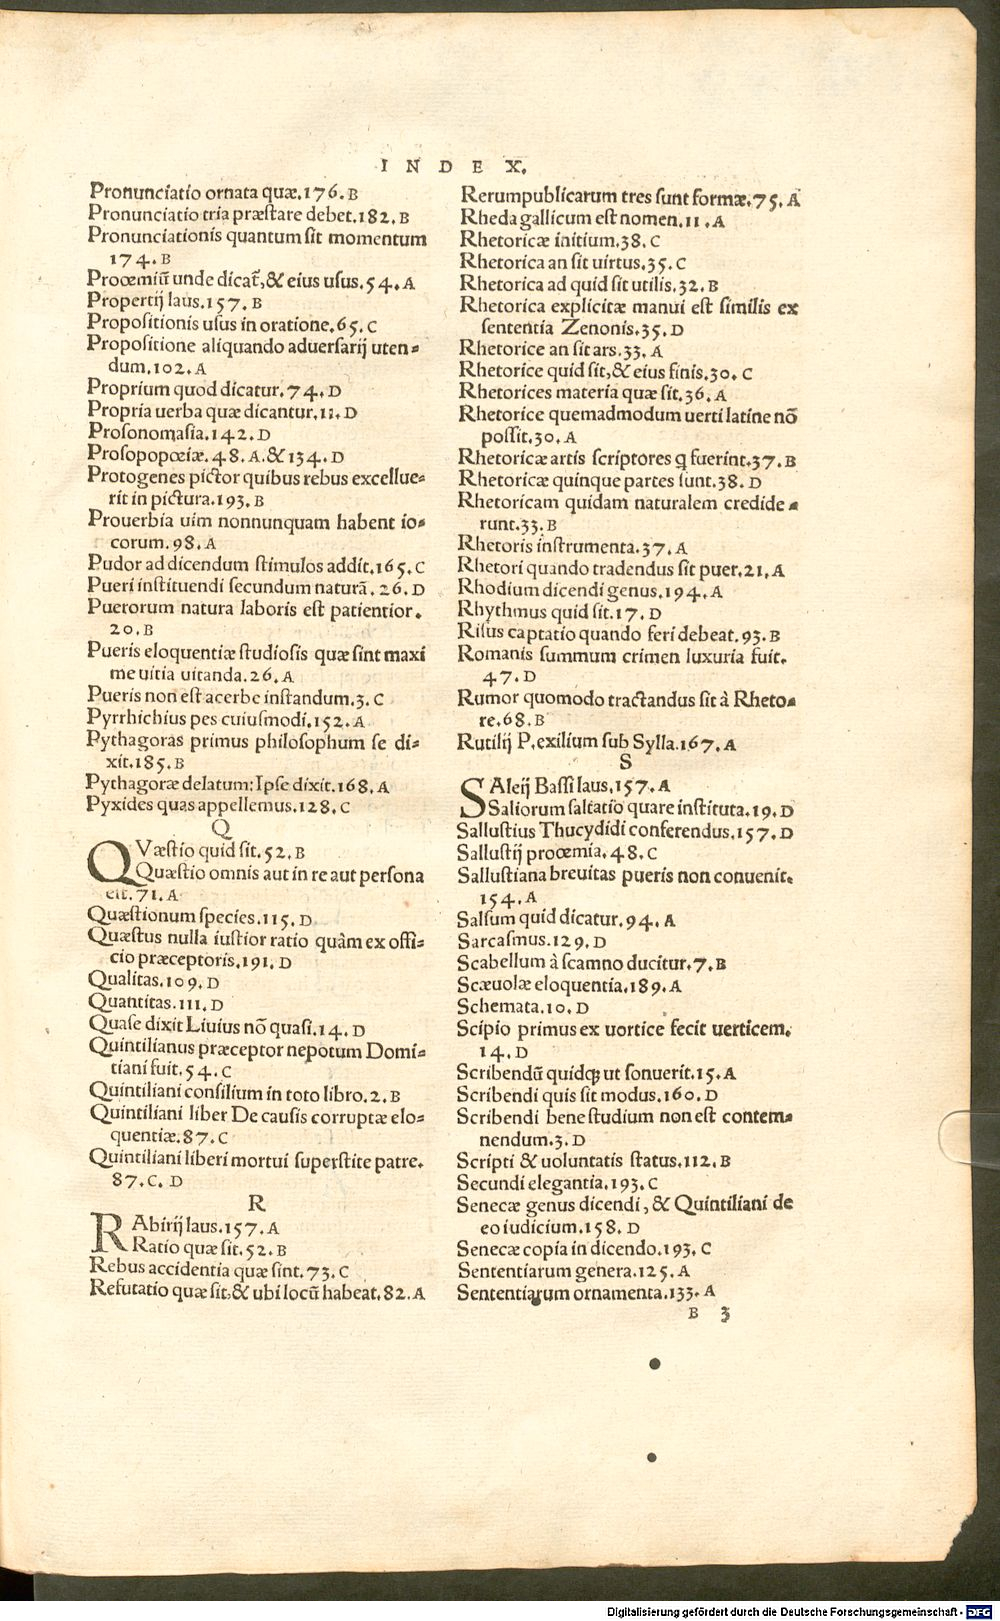 INDEX.
Pronunciatio ornata quæ.176.B
Pronunciatio tria præstare debet.182.B
Pronunciationis quantum sit momentum
174.B
Prooemiũ unde dicat̃,& eius usus.54.A
Propertij laus.157.B
Propositionis usus in oratione.65.C
Propositione aliquando aduersarij uten=
dum.102.A
Proprium quod dicatur.74.D
Propria uerba quæ dicantur.11.D
Prosonomasia.142.D
Prosopopœiæ.48.A.&134.D
Protogenes pictor quibus rebus excellue=
rit in pictura.193.B
Prouerbia uim nonnunquam habent io=
corum.98.A
Pudor ad dicendum stimulos addit.165.C
Pueri instituendi secundum naturã.26.D
Puerorum natura laboris est patientior.
20.B
Pueris eloquentiæ studiosis quæ sint maxi
me uitia uitanda.26.A
Pueris non est acerbe instandum.3.C
Pyrrhichius pes cuiusmodi.152.A
Pythagoras primus philosophum se di=
xit.185.B
Pythagoræ delatum: Ipse dixit.168.A
Pyxides quas appellemus.128.C
Q
QVæstio quid sit.52.B
Quæstio omnis aut in re aut persona
est.71.A
Quæstionum species.115.D
Quæstus nulla iustior ratio quàm ex offi=
cio præceptoris.191.D
Qualitas.109.D
Quantitas.111.D
Quase dixit Liuius nõ quasi.14.D
Quintilianus præceptor nepotum Domi=
tiani fuit.54.C
Quintiliani consilium in toto libro.2.B
Quintiliani liber De causis corruptæ elo=
quentiæ.87.C
Quintiliani liberi mortui superstite patre.
87.C.D
R
RAbirij laus.157.A
Ratio quæ sit.52.B
Rebus accidentia quæ sint.73.C
Refutatio quæ sit,& ubi locũ habeat.82.A
Rerumpublicarum tres sunt formæ.75.A
Rheda gallicum est nomen.11.A
Rhetoricæ initium.38.C
Rhetorica an sit uirtus.35.C
Rhetorica ad quid sit utilis.32.B
Rhetorica explicitæ manui est similis ex
sententia Zenonis.35.D
Rhetorice an sit ars.33.A
Rhetorice quid sit,& eius finis.30.C
Rhetorices materia quæ sit.36.A
Rhetorice quemadmodum uerti latine nõ
possit.30.A
Rhetoricæ artis scriptores ꝗ fuerint.37.B
Rhetoricæ quinque partes sunt.38.D
Rhetoricam quidam naturalem credide=
runt.33.B
Rhetoris instrumenta.37.A
Rhetori quando tradendus sit puer.21.A
Rhodium dicendi genus.194.A
Rhythmus quid sit.17.D
Risus captatio quando feri debeat.93.B
Romanis summum crimen luxuria fuit.
47.D
Rumor quomodo tractandus sit à Rheto=
re.68.B
Rutilij P.exilium sub Sylla.167.A
S
SAleij Bassi laus.157.A
Saliorum saltatio quare instituta.19.D
Sallustius Thucydidi conferendus.157.D
Sallustij prooemia.48.C
Sallustiana breuitas pueris non conuenit.
154.A
Salsum quid dicatur.94.A
Sarcasmus.129.D
Scabellum à scamno ducitur.7.B
Scæuolæ eloquentia.189.A
Schemata.10.D
Scipio primus ex uortice fecit uerticem.
14.D
Scribendũ quidqꝫ ut sonuerit.15.A
Scribendi quis sit modus.160.D
Scribendi bene studium non est contem=
nendum.3.D
Scripti & uoluntatis status.112.B
Secundi elegantia.193.C
Senecæ genus dicendi, & Quintiliani de
eo iudicium.158.D
Senecæ copia in dicendo.193.C
Sententiarum genera.125.A
Sententiarum ornamenta.133.A
B 3
Digitalisierung gefördert durch die Deutsche Forschungsgemeinschaft - DFG